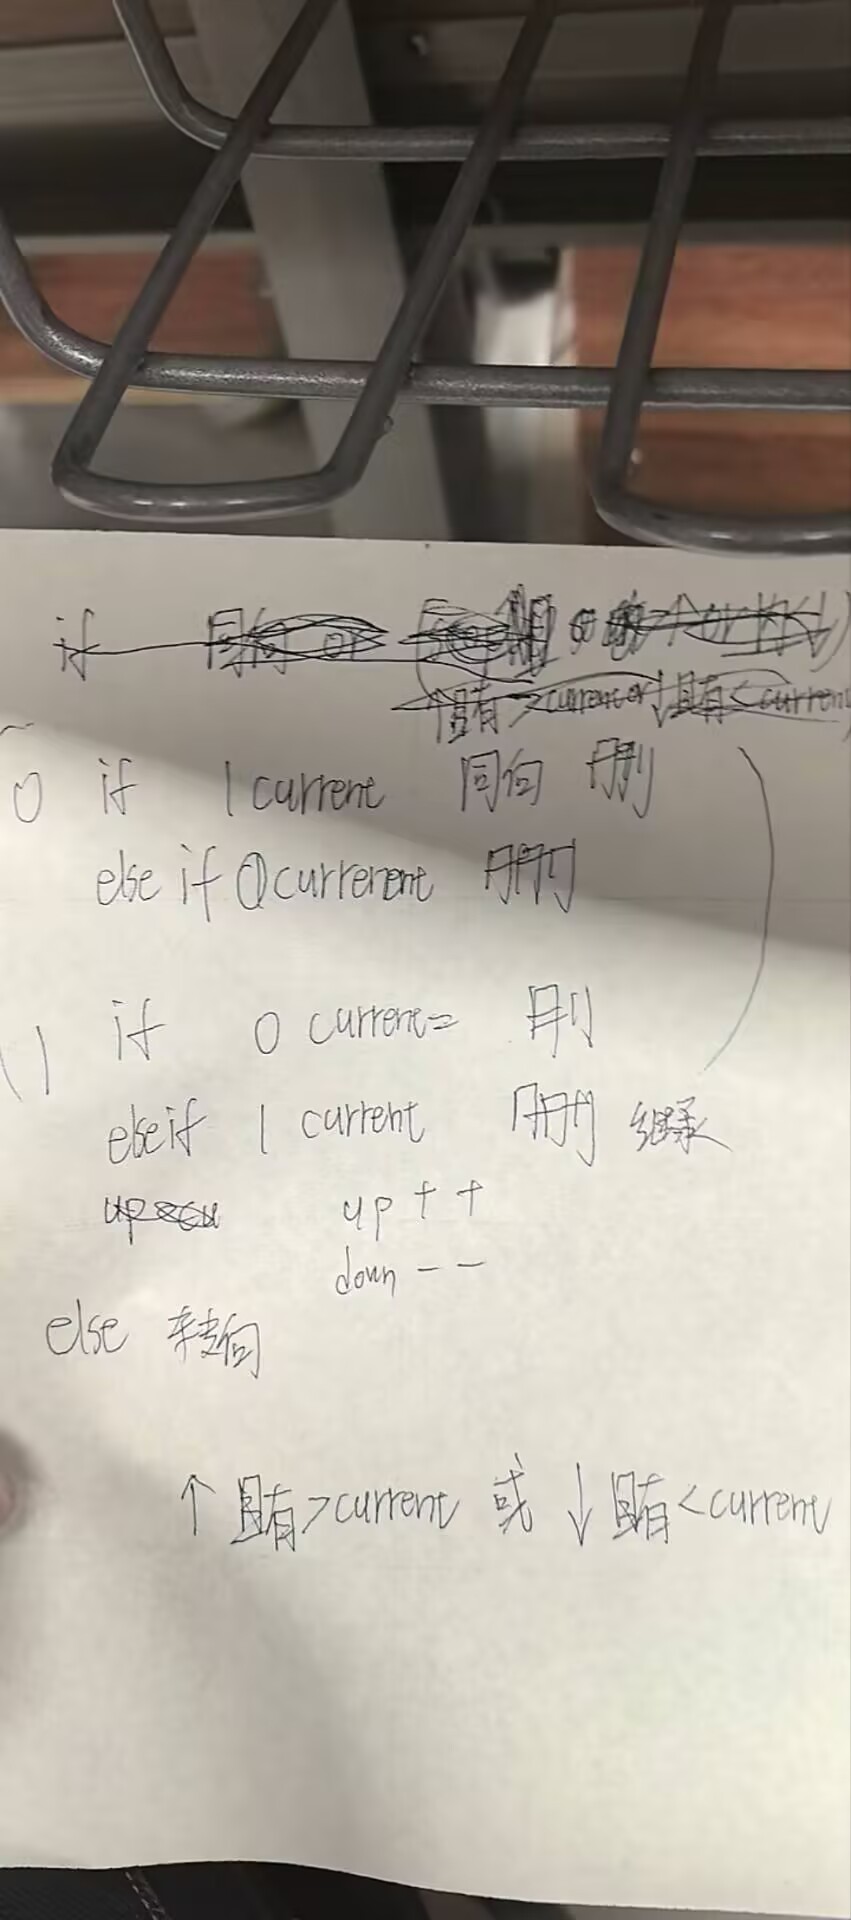 if 同向 or
且有>current or ↓且有<current
0 if 1 current 同向 删
else if 0 currerent 删
1 if 0 current= 删
else if 1 current 删 继承
up ++
down --
else 转向
↑ 且有>current 或 ↓ 且有<current